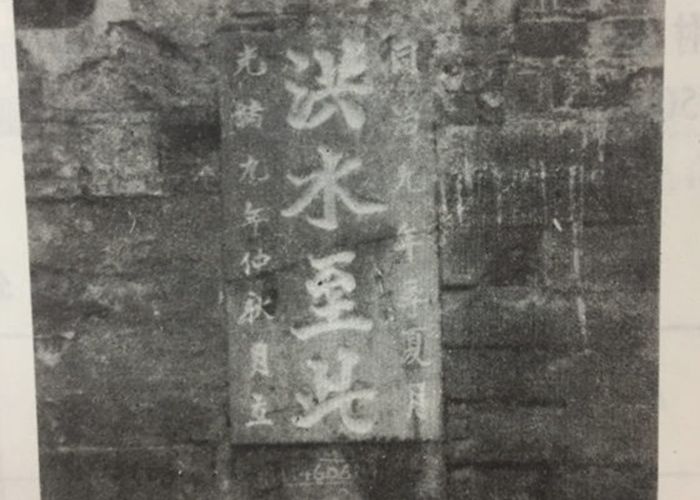 同治九年季夏月
洪水至此
光緒九年仲秋月立